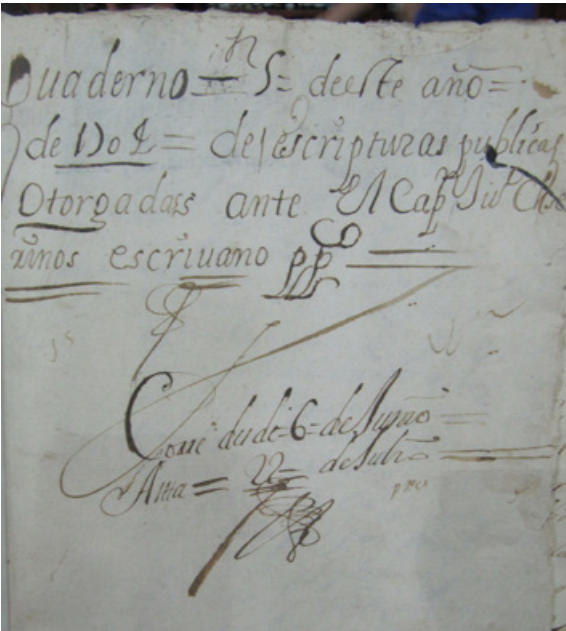 Quaderno = 5 = deeste año =
de = de escripturas publicas
Otorgadas ante El Cap.
rinos escriuano pp.co
Corre desde 6 de Junio
Asta = 22 = de Julio